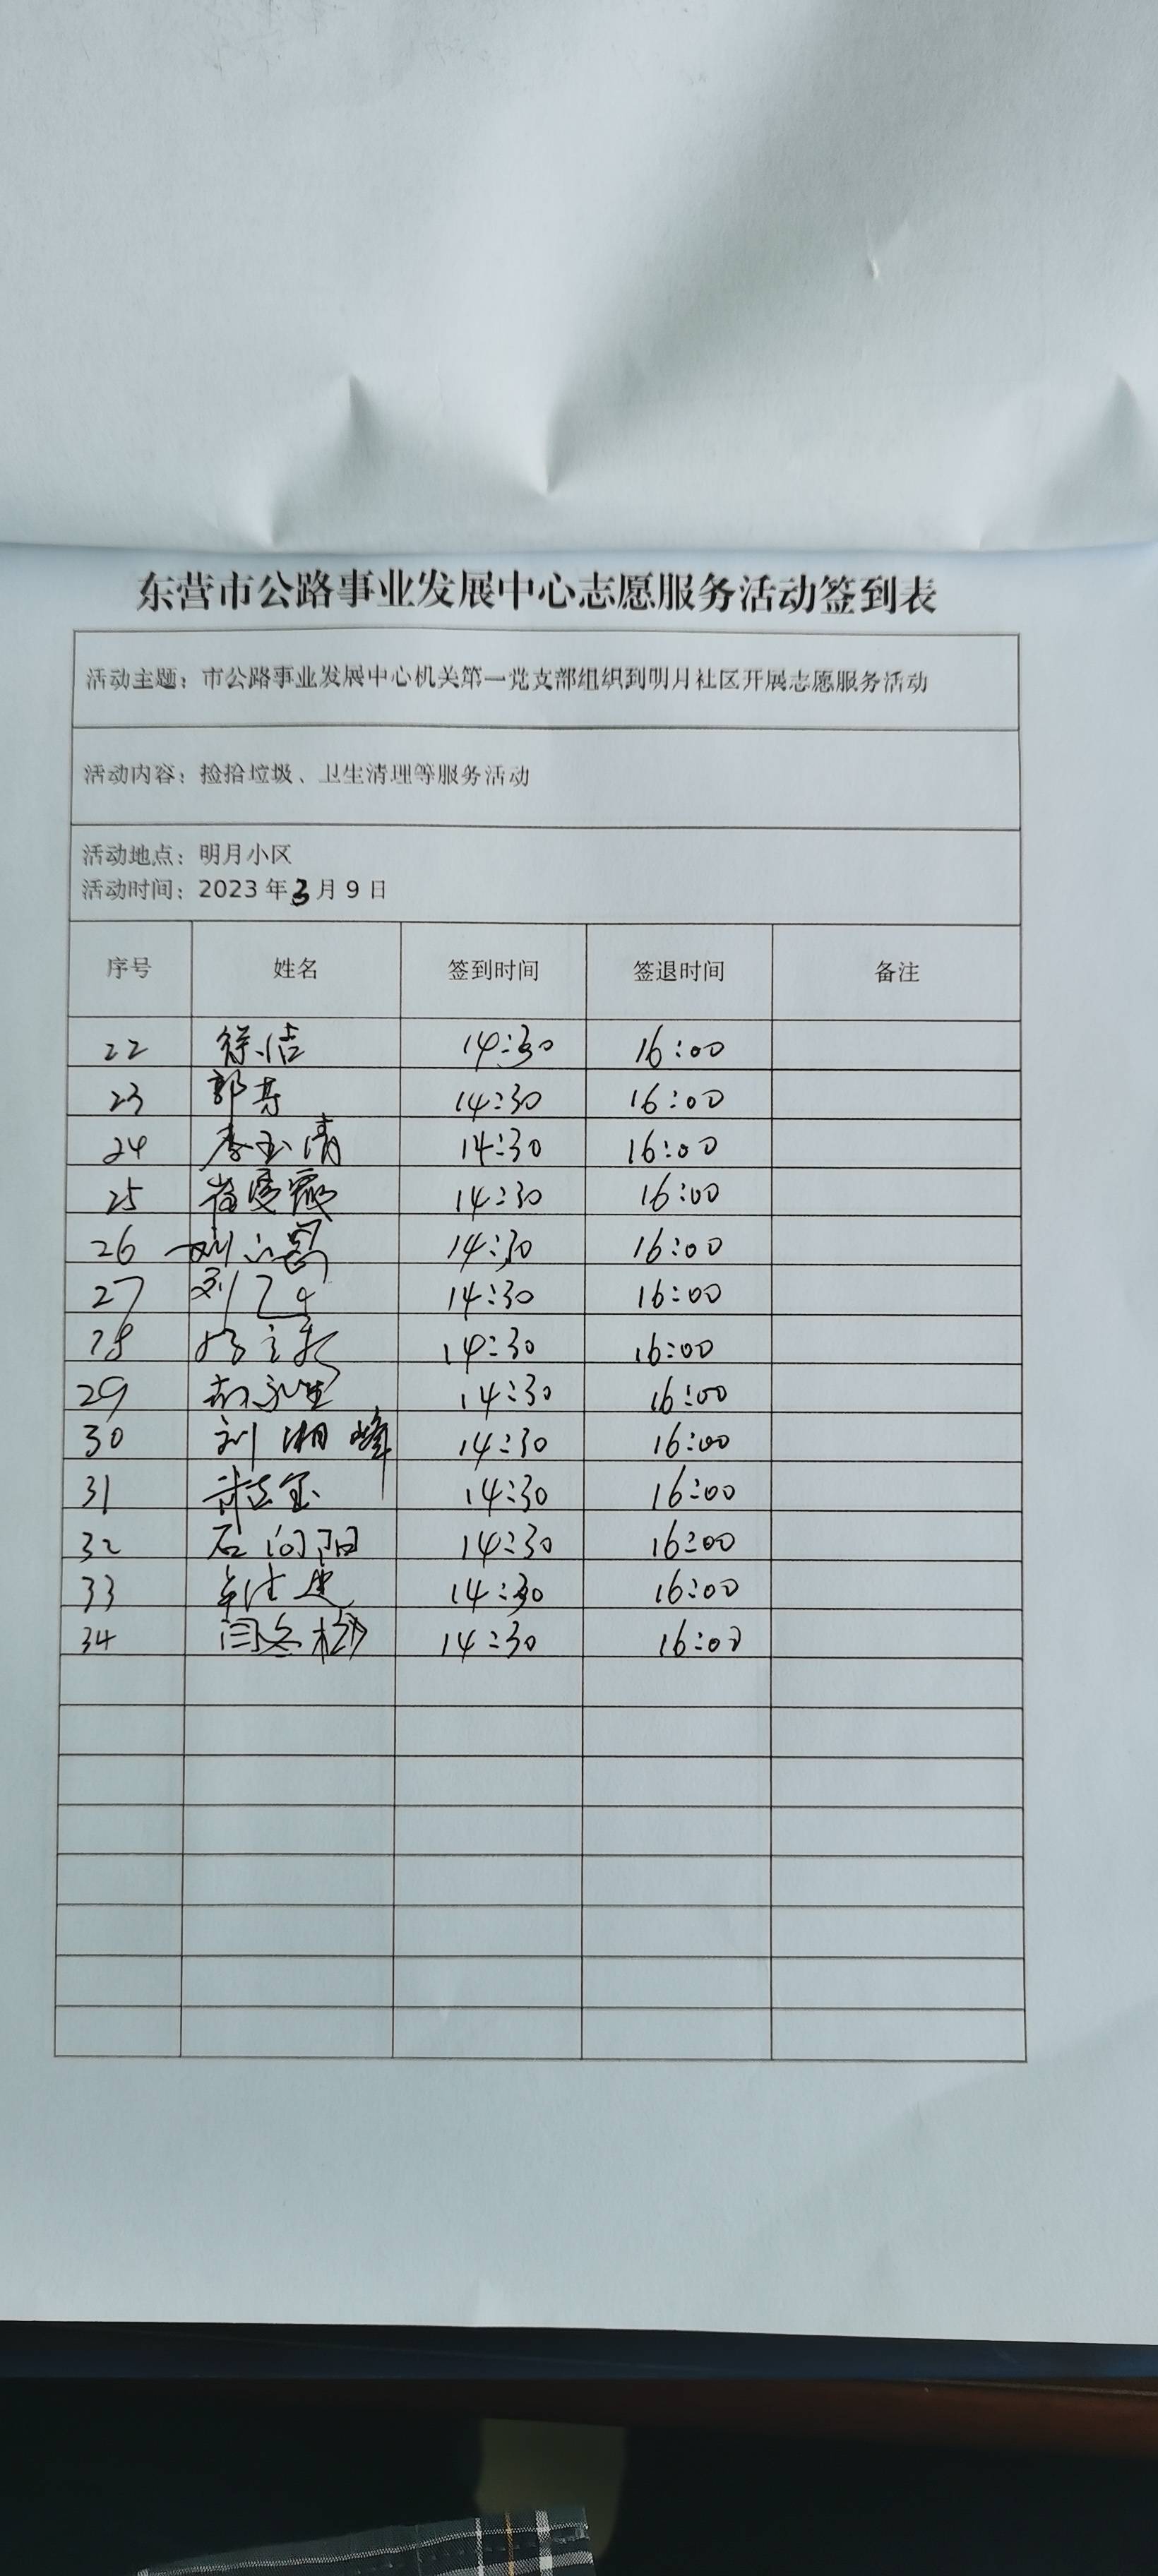 东营市公路事业发展中心志愿服务活动签到表
活动主题：市公路事业发展中心机关第一党支部组织到明月社区开展志愿服务活动
活动内容：捡拾垃圾、卫生清理等服务活动
活动地点：明月小区
活动时间：2023年3月9日
序号 姓名 签到时间 签退时间 备注
22 徐洁 14:30 16:00
23 郭芳 14:30 16:00
24 李玉清 14:30 16:00
25 14:30 16:00
26 14:30 16:00
27 14:30 16:00
28 14:30 16:00
29 14:30 16:00
30 刘湘峰 14:30 16:00
31 14:30 16:00
32 石向阳 14:30 16:00
33 14:30 16:00
34 14:30 16:00